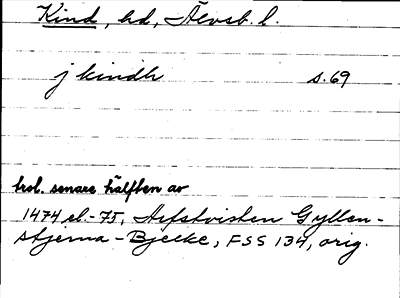 Kind, hd, Älvsb. l.
j kindh s. 69
trol. senare hälften av
1474 el. -75, Arvstvisten Gyllen-
stjerna - Bjelke, FSS 134, orig.